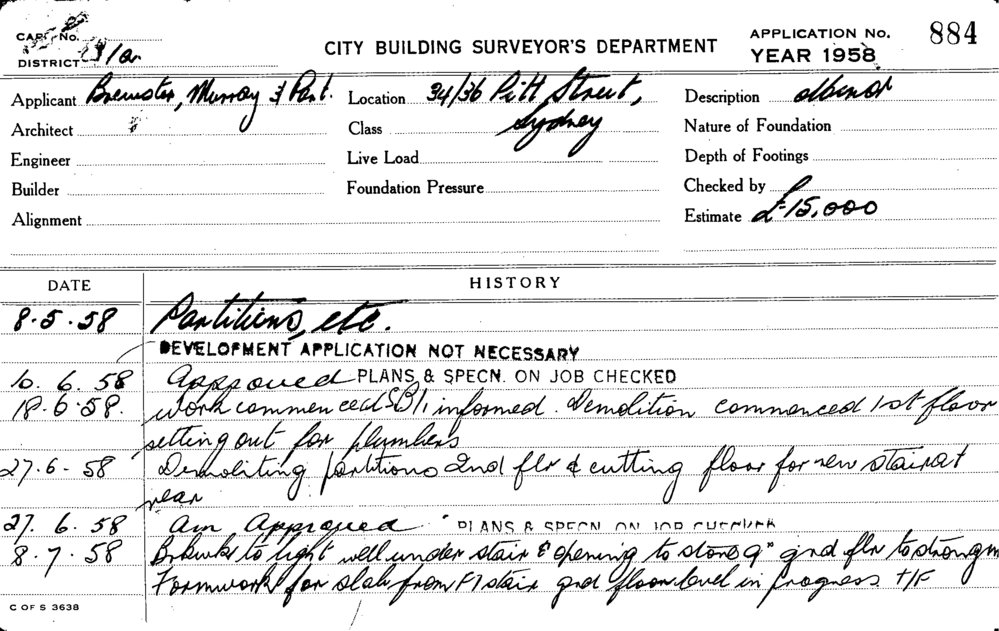 CARD No.
DISTRICT 1/a
CITY BUILDING SURVEYOR'S DEPARTMENT
APPLICATION No. 884
YEAR 1958
Applicant Brewster, Murray & Part.
Location 34/36 Pitt Street, Sydney
Description
Architect
Class
Nature of Foundation
Engineer
Live Load
Depth of Footings
Builder
Foundation Pressure
Checked by
Alignment
Estimate £15,000
DATE HISTORY
8.5.58 Partitions, etc.
DEVELOPMENT APPLICATION NOT NECESSARY
10.6.58 Approved PLANS & SPECN. ON JOB CHECKED
18.6.58. Work commenced informed. Demolition commenced 1st floor
setting out for plumbers
27.6.58 Demoliting partitions 2nd flr & cutting floor for new stair at
rear
27.6.58 Am Approved PLANS & SPECN. ON JOB CHECKED
8.7.58 Brkwk to light well under stair & opening to store 9" grd flr to strong rm
Formwork for slab from F1 stair grd floor level in progress
C OF S 3638